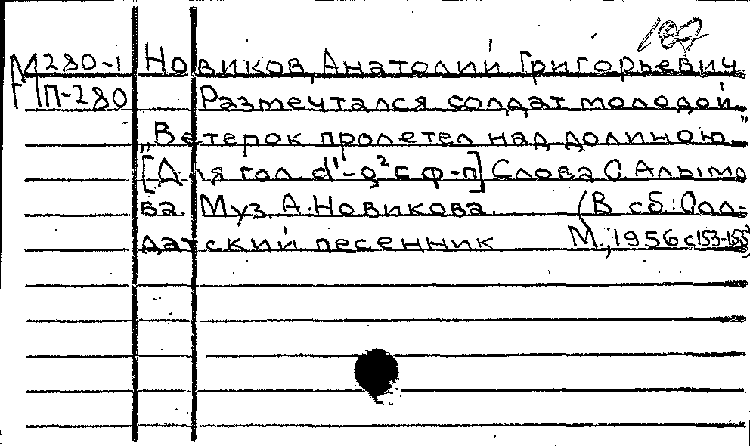 187
М280-1 Новиков, Анатолий Григорьевич
ГП-280 Размечтался солдат молодой.
„Ветерок пролетел над долиною..."
[Для гол. d¹-g² с ф-п] Слова С. Алымо
ва. Муз. А. Новикова. (В сб.: Сол-
датский песенник М., 1956 с 153-155)